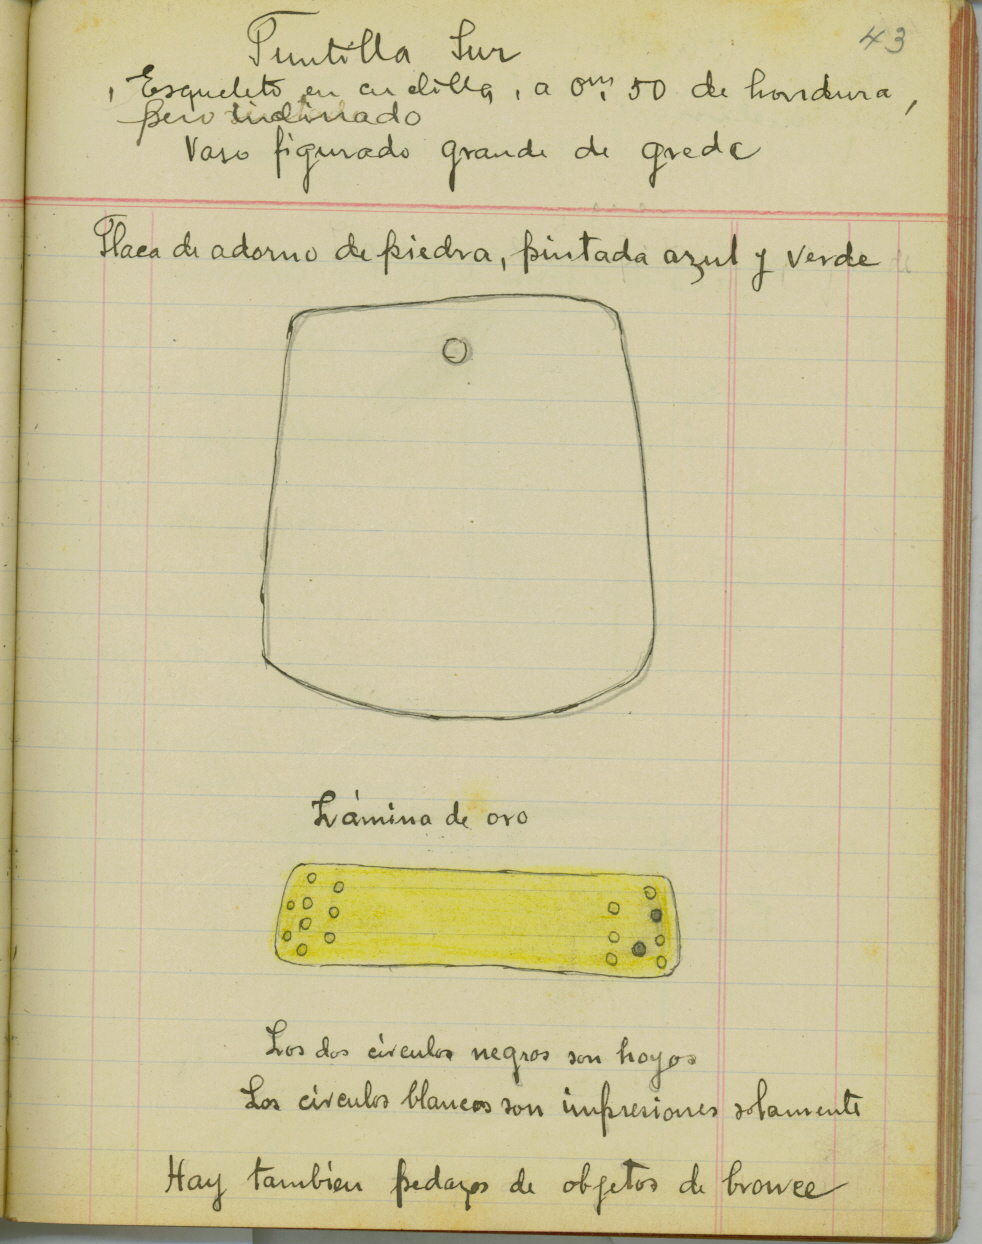 43
Puntilla Sur
Esqueleto en cuclilla, a 0m, 50 de hondura,
pero inclinado
Vaso figurado grande de greda
Placa de adorno de piedra, pintada azul y verde
Lámina de oro
Los dos círculos negros son hoyos
Los círculos blancos son impresiones solamente
Hay tambien pedazos de objetos de bronce